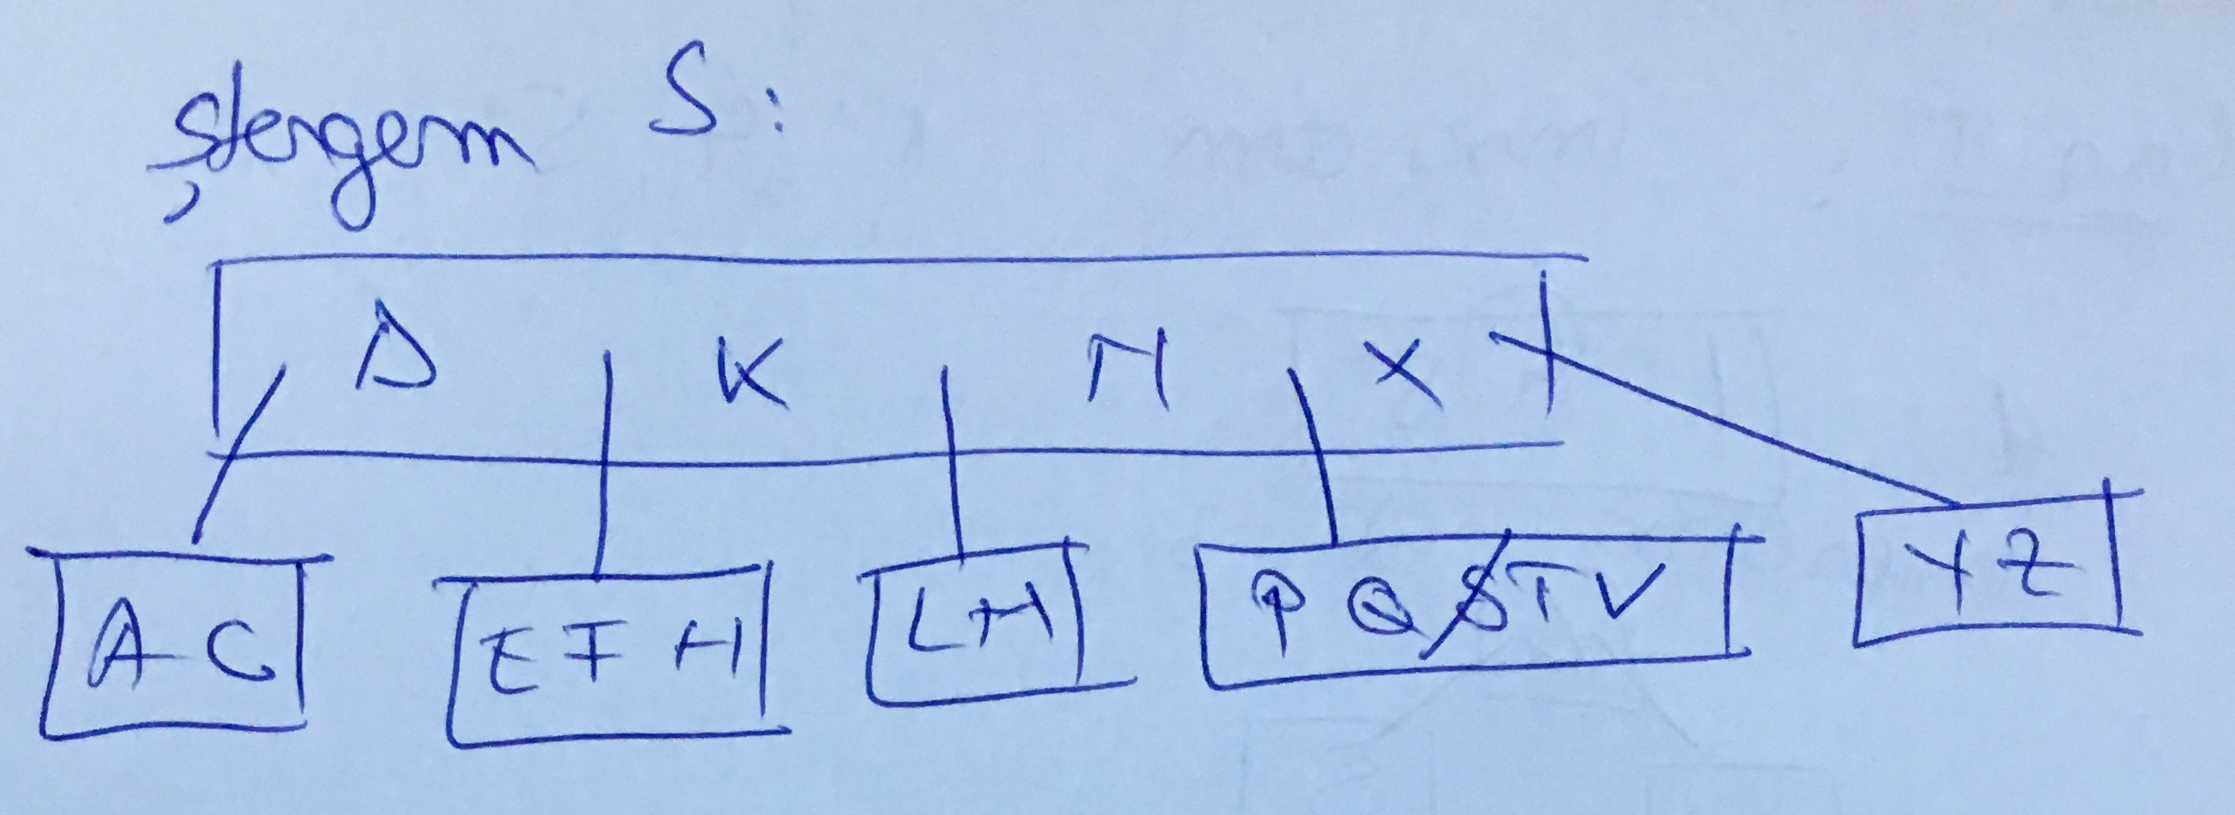 ștergem S:
D K N X
A C E F H L M P Q S T V Y Z